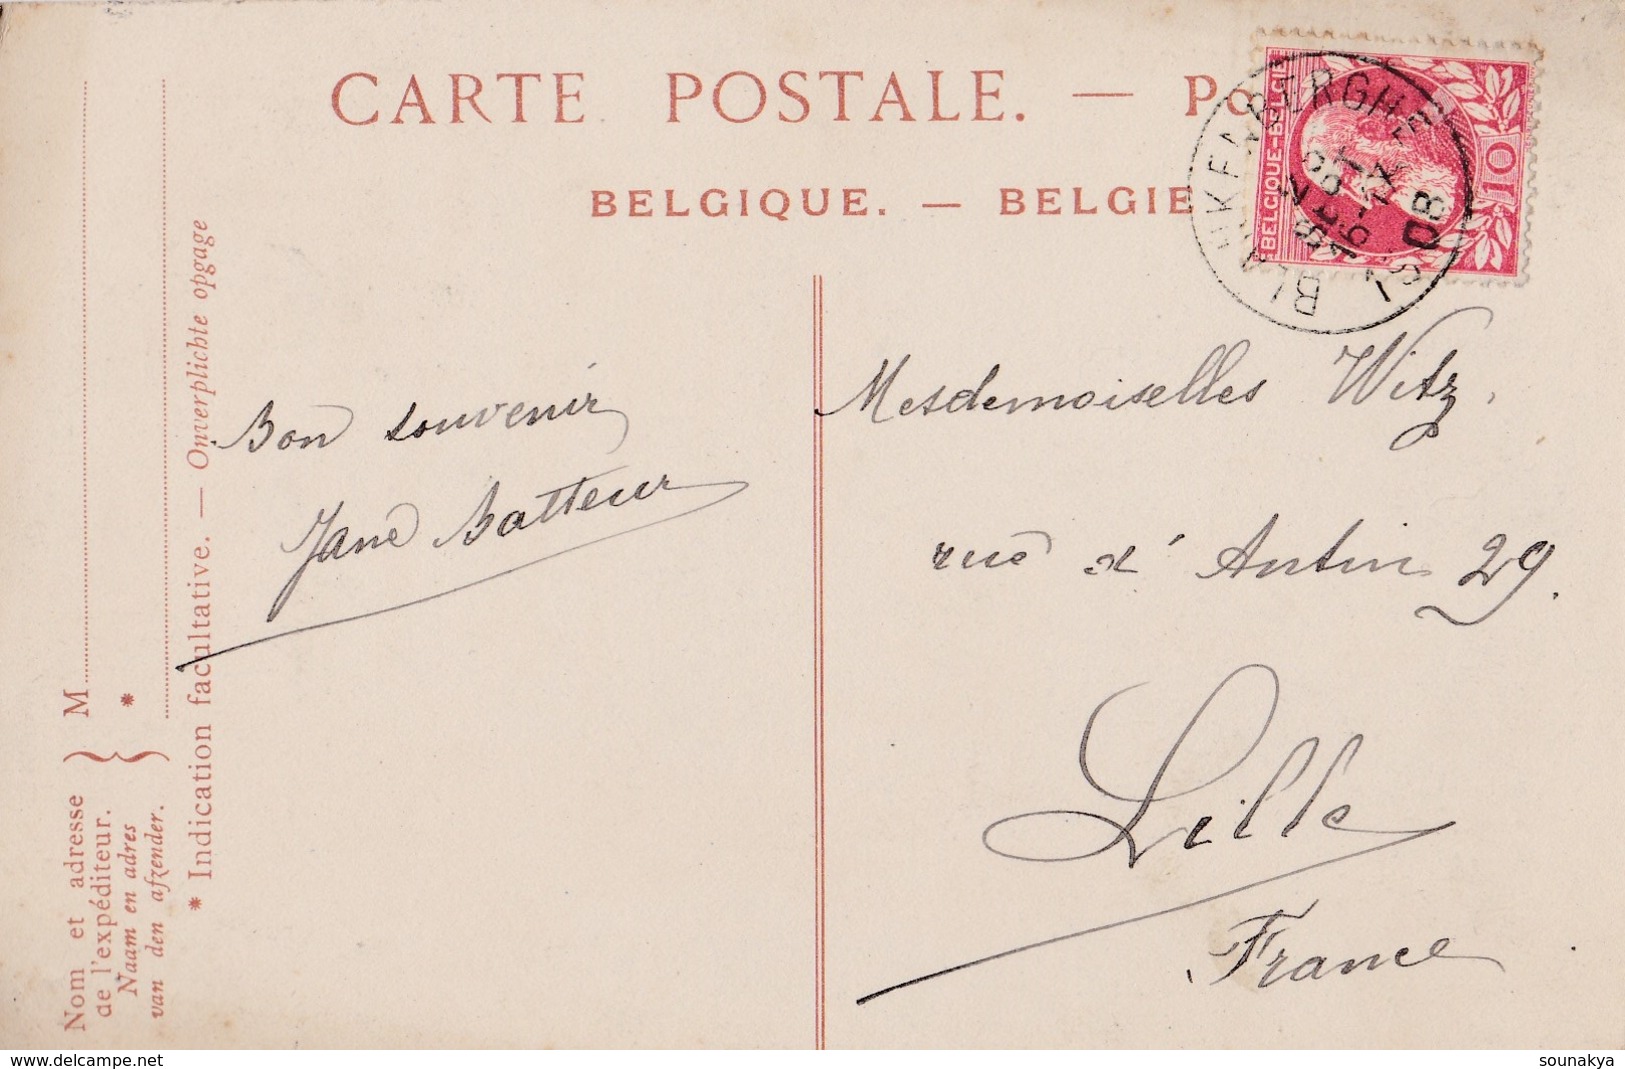 CARTE POSTALE. —
BELGIQUE. — BELGIE
BELGIQUE-BELGIE
10
BLANKENBERGHE
1908
Bon souvenir
Jane Batteur
Mesdemoiselles Witz.
rue d'Antin 29.
Lille
France
Nom et adresse
de l'expéditeur.
Naam en adres
van den afzender.
M
*
* Indication facultative. — Onverplichte opgage
www.delcampe.net
sounakya